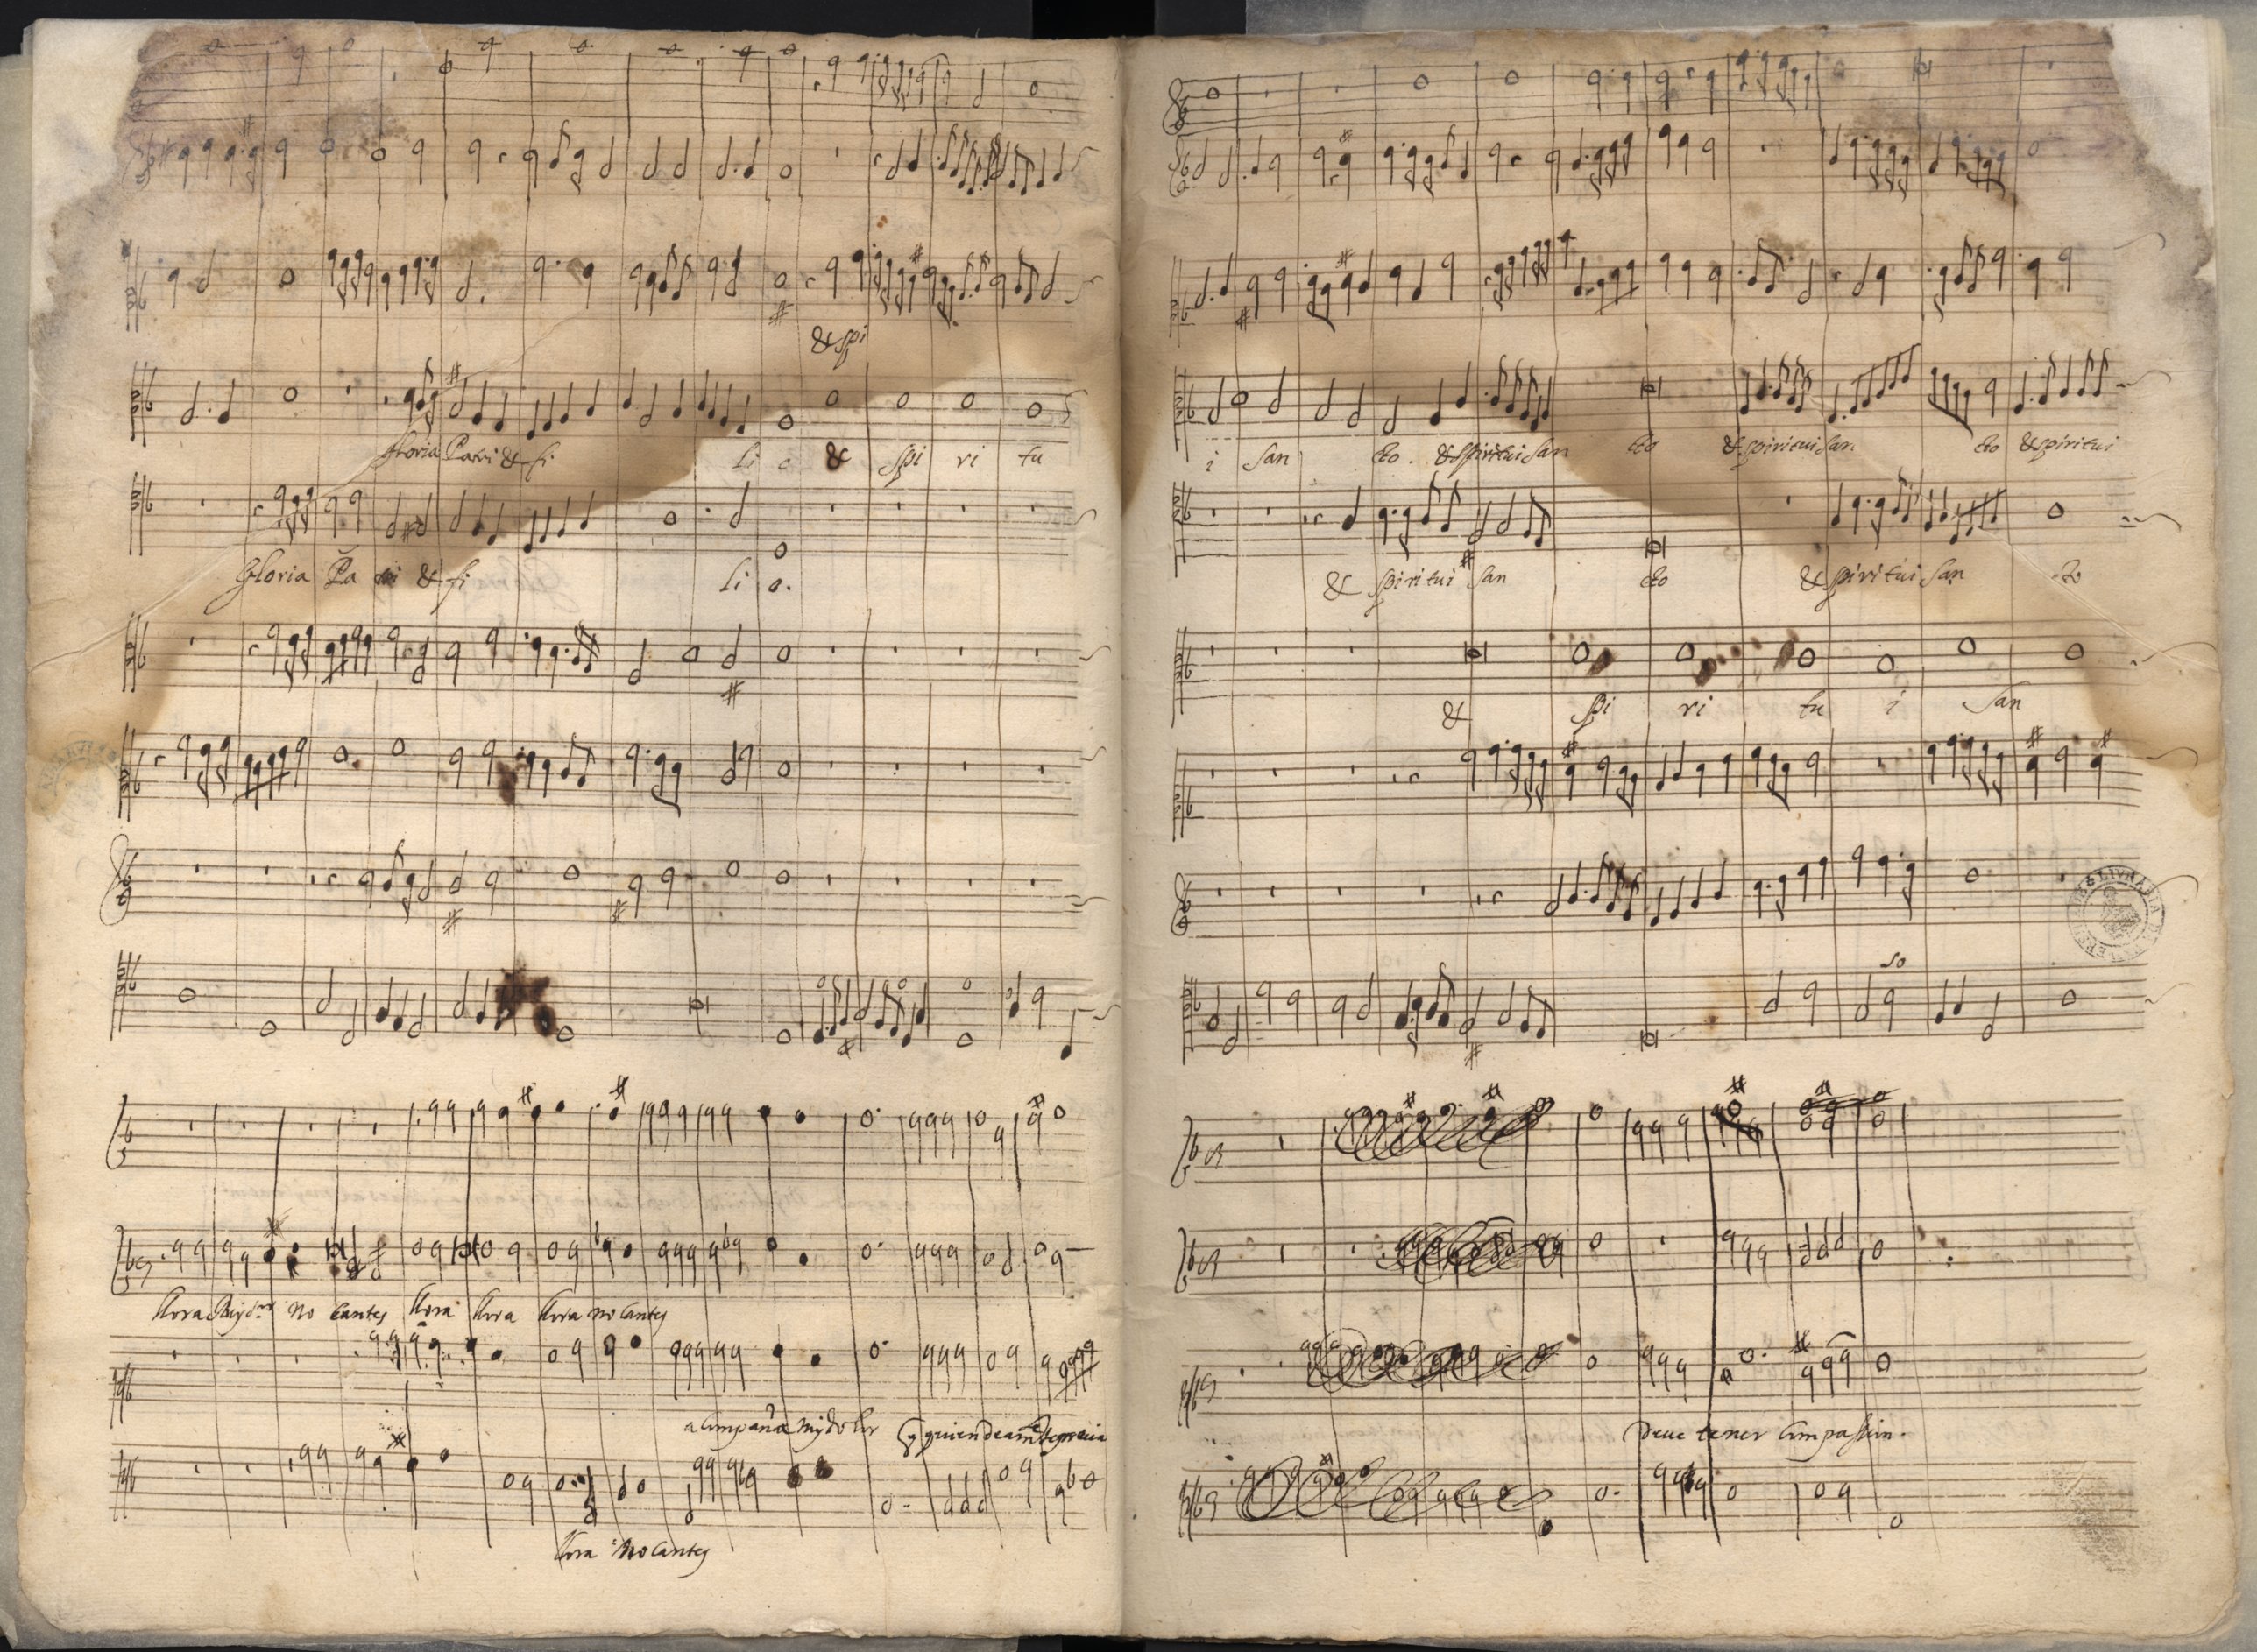 & spi
Gloria Patri & fi li o & spi ri tu
Gloria Pa tri & fi li o.
llora no cantes llora llora llora no cantes
acompaña mi dolor
llora no cantes
i san cto. & spiritui san cto & spiritui san cto & spiritui
& spiritui san cto & spiritui san cto
& spi ri tu i san
so
Deue tener compasion.